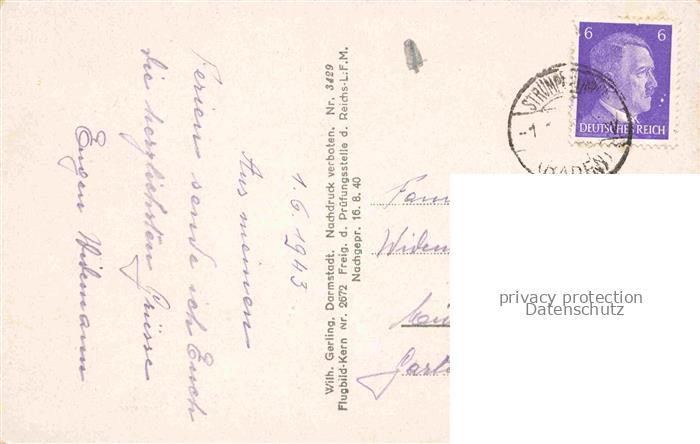 1.6.1943.
Aus meinen
Ferien sende ich Euch
die herzlichsten Grüsse
Eugen Widemann
Wilh. Gerling, Darmstadt. Nachdruck verboten. Nr. 3429
Flugbild-Kern Nr. 2672 Freig. d. Prüfungsstelle d. Reichs-L.F.M.
Nachgepr. 16. 8. 40
6 6
DEUTSCHES REICH
(BADEN)
Fam
Widem
Gart
privacy protection
Datenschutz